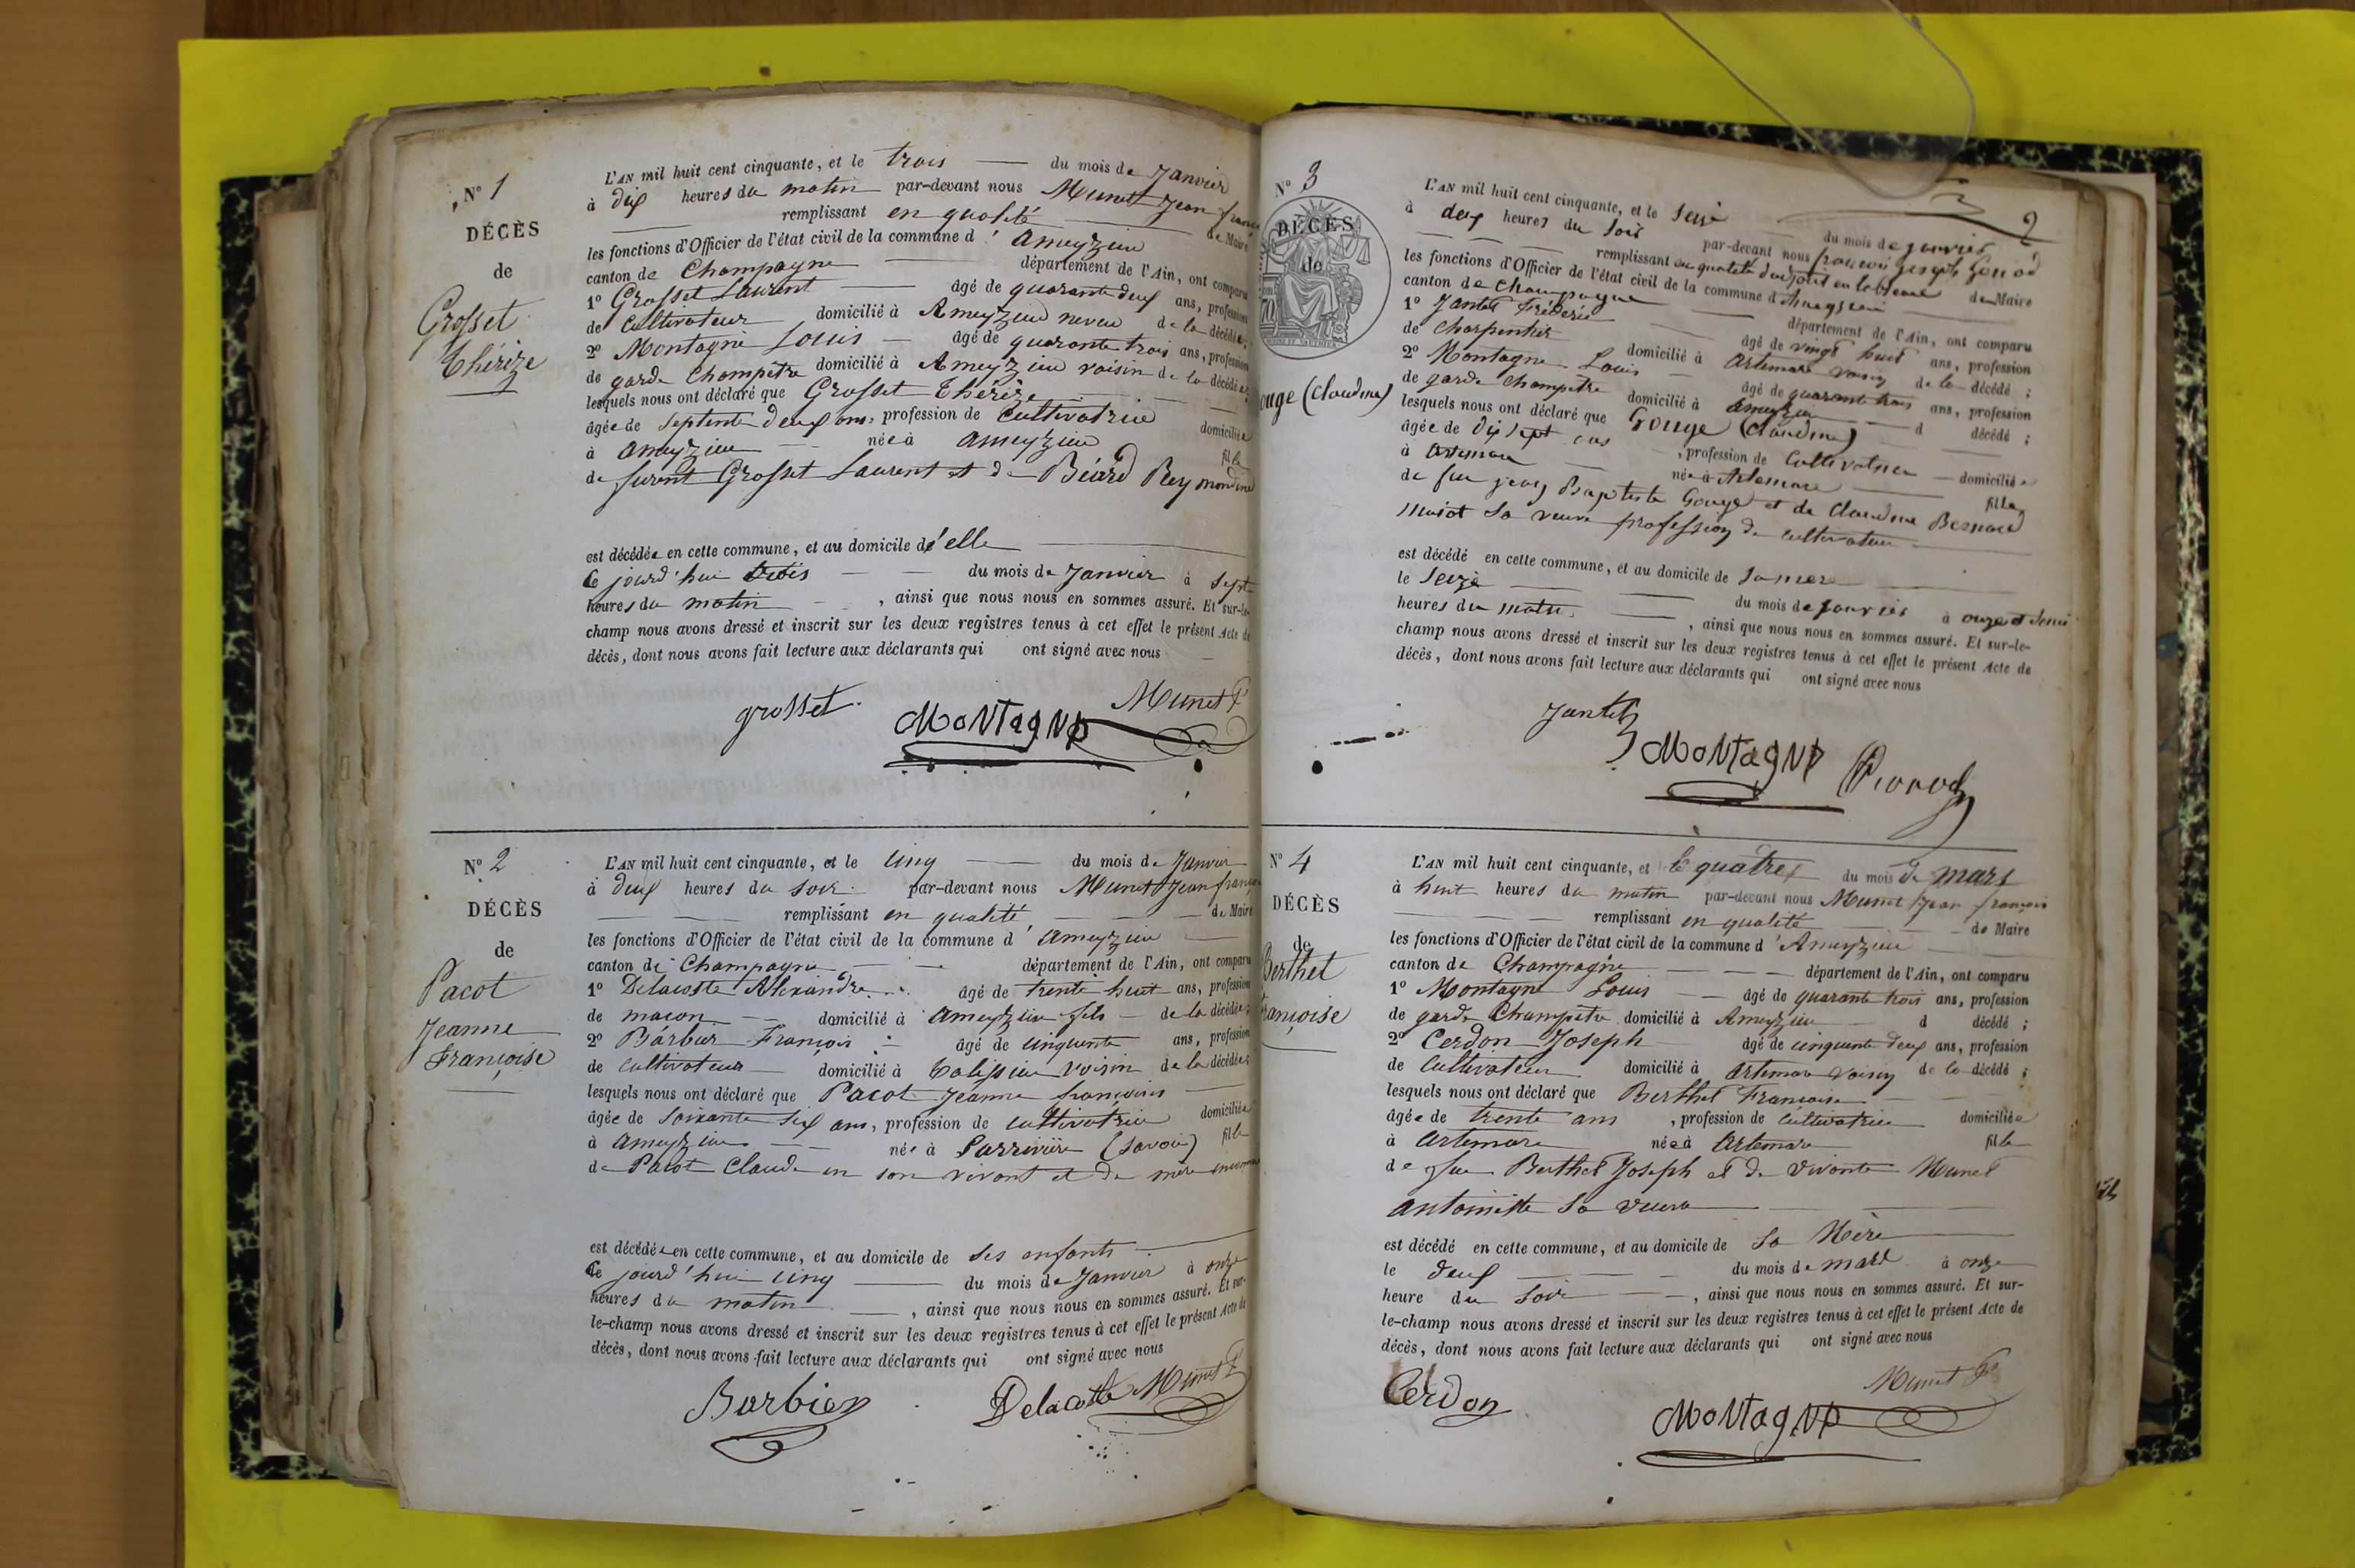 N° 1
DÉCÈS
de
Grosset
Thérèze
L'AN mil huit cent cinquante, et le trois du mois de Janvier
à dix heures du matin par-devant nous Munet Jean françois
remplissant en qualité de Maire
les fonctions d'Officier de l'état civil de la commune d'Ameyzieu
canton de Champagne département de l'Ain, ont comparu
1° Grosset Laurent âgé de quarante deux ans, profession
de Cultivateur domicilié à Ameyzieu neveu de la décédée;
2° Montagne Louis âgé de quarante trois ans, profession
de garde Champêtre domicilié à Ameyzieu voisin de la décédée;
lesquels nous ont déclaré que Grosset Thérèze
âgée de septente deux ans, profession de cultivatrice domiciliée
à Ameyzieu née à Ameyzieu fille
de furent Grosset Laurent et de Béard Reymondine
est décédée en cette commune, et au domicile d'elle
Ce jourd'hui trois du mois de Janvier à sept
heures du matin, ainsi que nous nous en sommes assuré. Et sur-le-
champ nous avons dressé et inscrit sur les deux registres tenus à cet effet le présent Acte de
décès, dont nous avons fait lecture aux déclarants qui ont signé avec nous
grosset Montagne Munet F
N° 2
DÉCÈS
de
Pacot
Jeanne
Françoise
L'AN mil huit cent cinquante, et le cinq du mois de Janvier
à deux heures du soir par-devant nous Munet Jean françois
remplissant en qualité de Maire
les fonctions d'Officier de l'état civil de la commune d'Ameyzieu
canton de Champagne département de l'Ain, ont comparu
1° Delacoste Alexandre âgé de trente huit ans, profession
de maçon domicilié à Ameyzieu fils de la décédée;
2° Barbier François âgé de cinquante ans, profession
de Cultivateur domicilié à Talissieu voisin de la décédée;
lesquels nous ont déclaré que Pacot Jeanne françoise
âgée de soixante six ans, profession de cultivatrice domiciliée
à Ameyzieu née à Serrières (Savoie) fille
de Pacot Claude en son vivant et de mère inconnue
est décédée en cette commune, et au domicile de ses enfants
Ce jourd'hui cinq du mois de Janvier à onze
heures du matin, ainsi que nous nous en sommes assuré. Et sur-
le-champ nous avons dressé et inscrit sur les deux registres tenus à cet effet le présent Acte de
décès, dont nous avons fait lecture aux déclarants qui ont signé avec nous
Barbier Delacoste Munet F
2
N° 3
DÉCÈS
de
ouge (Claudine)
L'AN mil huit cent cinquante, et le seize du mois de janvier
à deux heures du soir par-devant nous françois joseph
remplissant en qualité d'adjoint de Maire
les fonctions d'Officier de l'état civil de la commune d'Ameyzieu
canton de Champagne département de l'Ain, ont comparu
1° Jantet Fréderic âgé de vingt huit ans, profession
de Charpentier domicilié à Artemare voisin de la décédé;
2° Montagne Louis âgé de quarante trois ans, profession
de garde Champêtre domicilié à Ameyzieu d décédé;
lesquels nous ont déclaré que Gouge (Claudine)
âgée de dix sept ans, profession de Cultivatrice domiciliée
à Artemare née à Artemare fille
de feu jean Baptiste Gouge et de Claudine Bernard
sa veuve profession de cultivateur
est décédé en cette commune, et au domicile de sa mère
le seize du mois de janvier à onze et demi
heures du matin, ainsi que nous nous en sommes assuré. Et sur-le-
champ nous avons dressé et inscrit sur les deux registres tenus à cet effet le présent Acte de
décès, dont nous avons fait lecture aux déclarants qui ont signé avec nous
Jantet Montagne
N° 4
DÉCÈS
de
Berthet
ançoise
L'AN mil huit cent cinquante, et le quatre du mois de mars
à huit heures du matin par-devant nous Munet Jean françois
remplissant en qualité de Maire
les fonctions d'Officier de l'état civil de la commune d'Ameyzieu
canton de Champagne département de l'Ain, ont comparu
1° Montagne Louis âgé de quarante trois ans, profession
de garde Champêtre domicilié à Ameyzieu d décédé;
2° Cerdon Joseph âgé de cinquante deux ans, profession
de Cultivateur domicilié à Artemare voisin de la décédé;
lesquels nous ont déclaré que Berthet Françoise
âgée de trente ans, profession de Cultivatrice domiciliée
à Artemare née à Artemare fille
de feu Berthet Joseph et de vivante Munet
Antoinette sa veuve
est décédé en cette commune, et au domicile de sa Mère
le deux du mois de mars à onze
heure du soir, ainsi que nous nous en sommes assuré. Et sur-
le-champ nous avons dressé et inscrit sur les deux registres tenus à cet effet le présent Acte de
décès, dont nous avons fait lecture aux déclarants qui ont signé avec nous
Cerdon Montagne Munet F